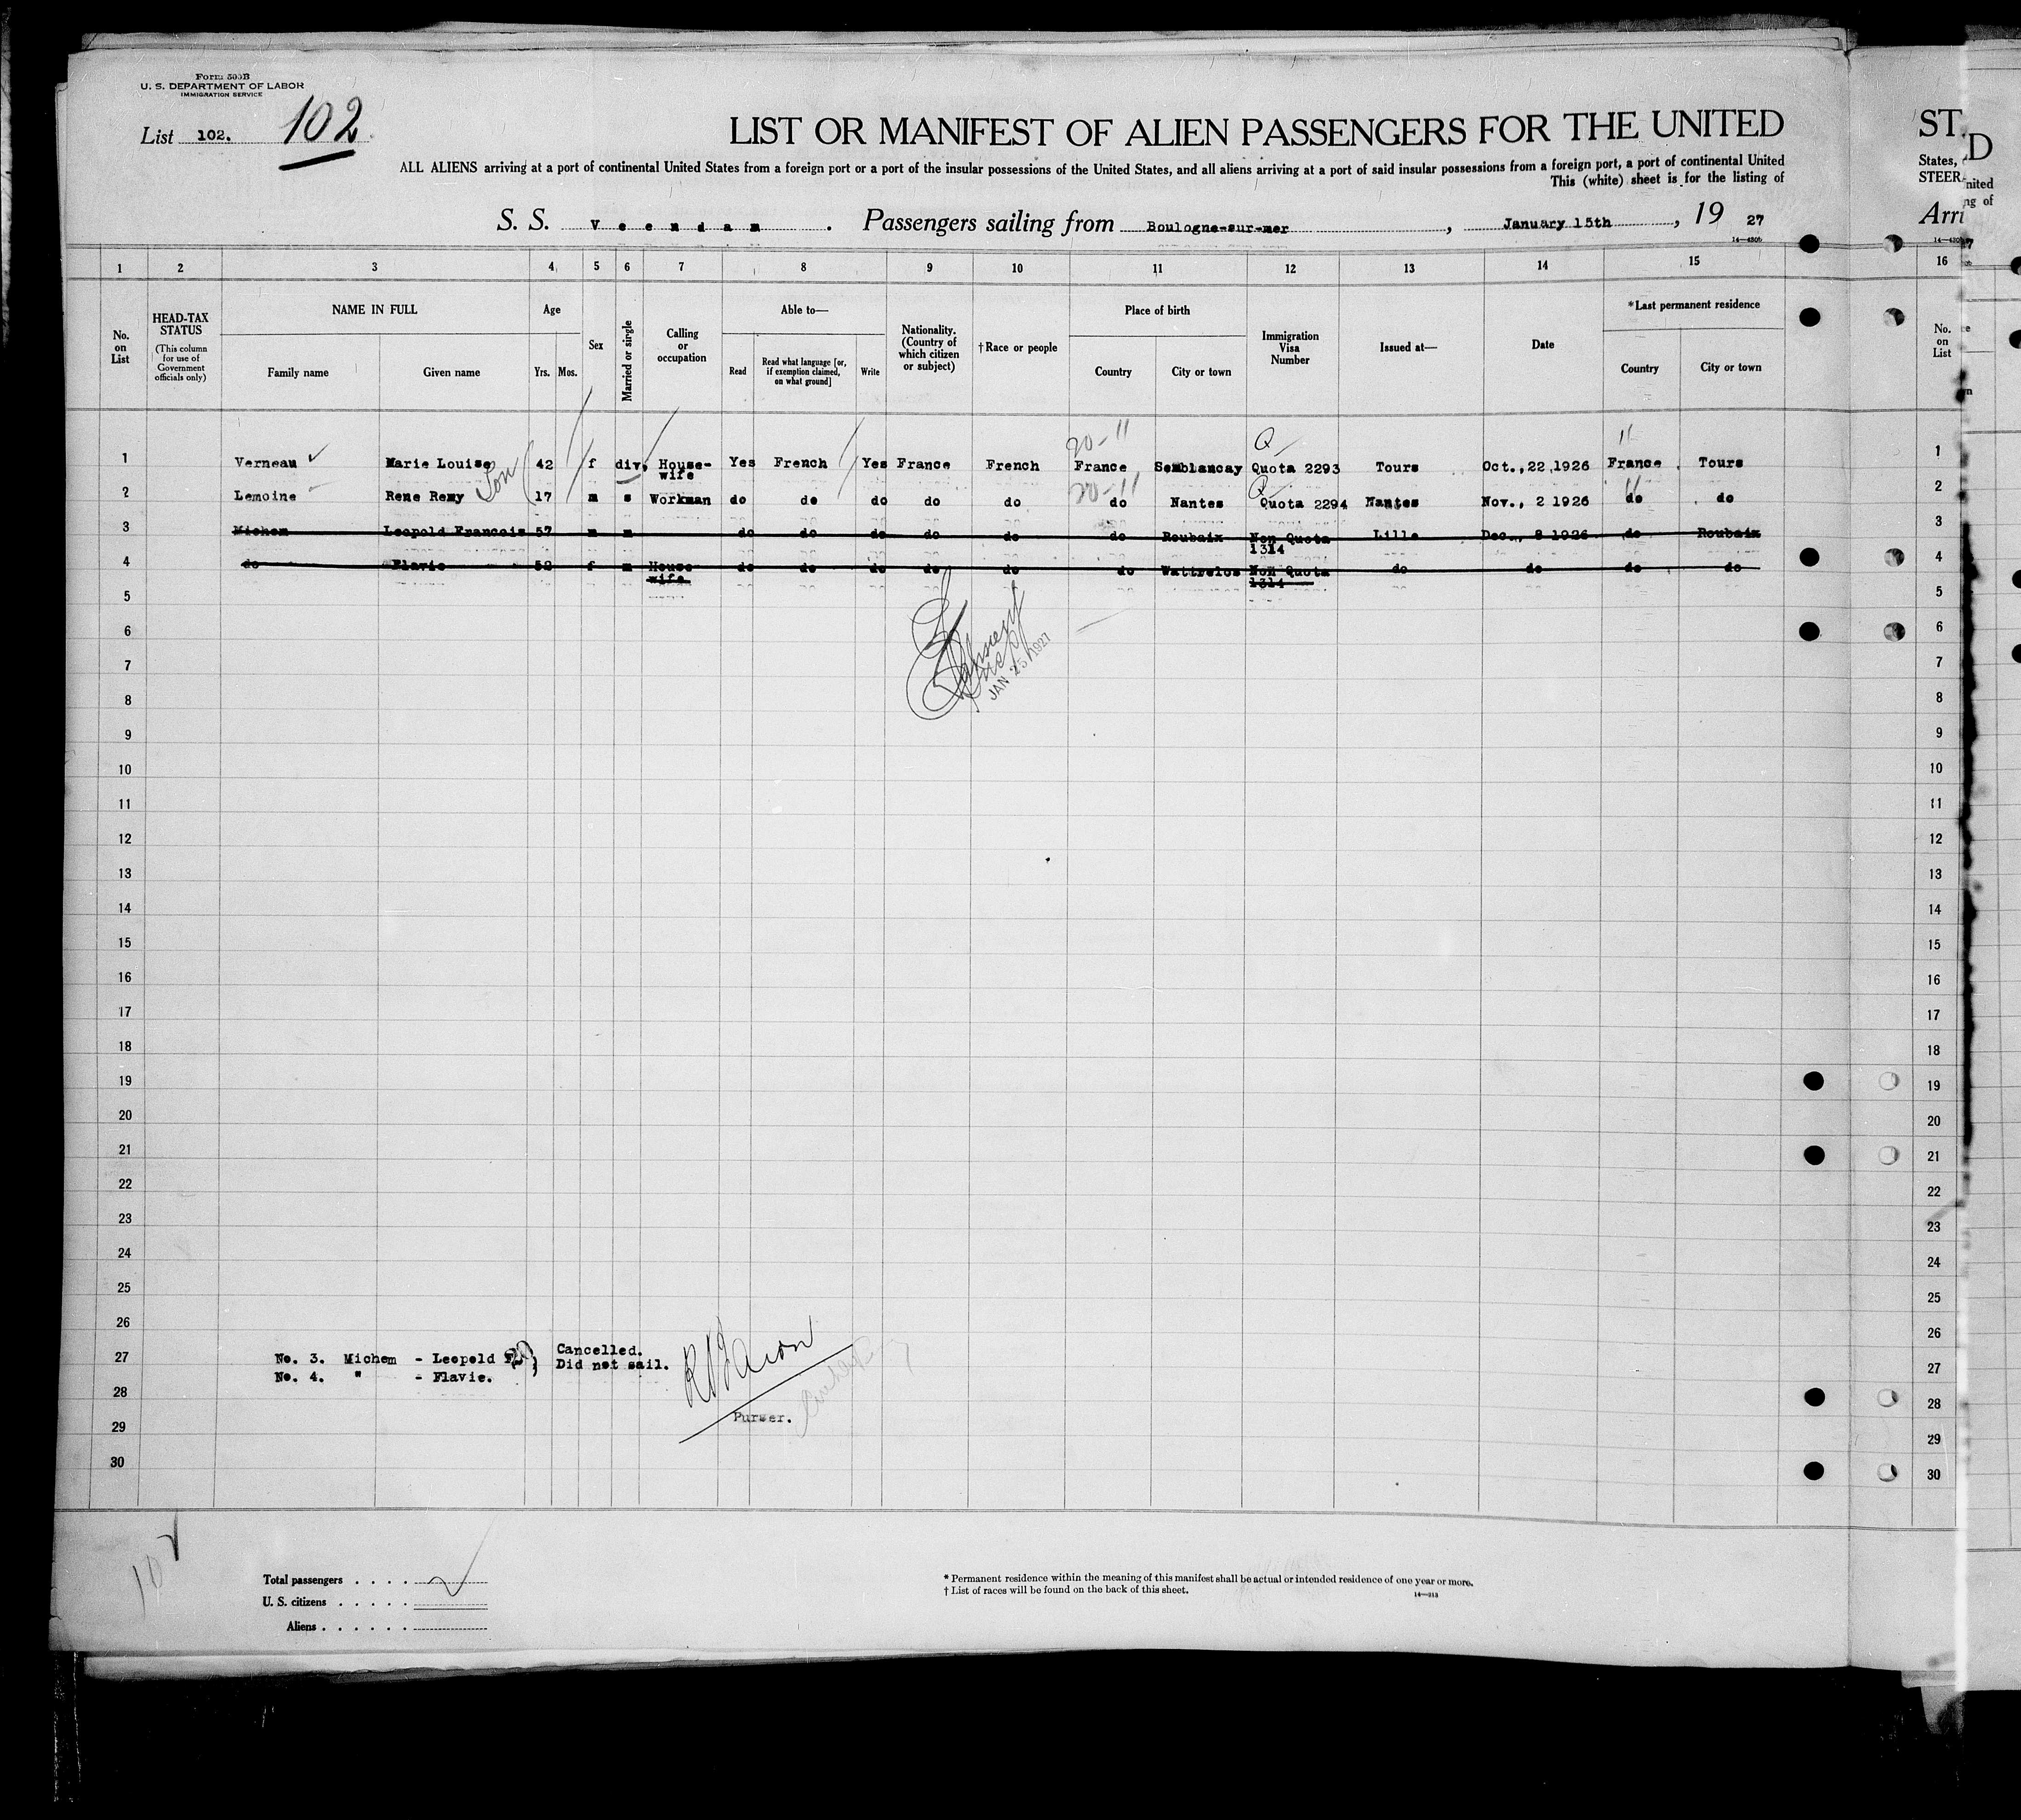 Form 500B
U. S. DEPARTMENT OF LABOR
IMMIGRATION SERVICE
List 102. 102
LIST OR MANIFEST OF ALIEN PASSENGERS FOR THE UNITED
ALL ALIENS arriving at a port of continental United States from a foreign port or a port of the insular possessions of the United States, and all aliens arriving at a port of said insular possessions from a foreign port, a port of continental United
This (white) sheet is for the listing of
S. S. Veendam. Passengers sailing from Boulogne-sur-mer, January 15th, 19 27
ST
States,
STEER
Arri
D
nited
ng of
1 2 3 4 5 6 7 8 9 10 11 12 13 14 15 16
No. on List
HEAD-TAX STATUS
(This column for use of Government officials only)
NAME IN FULL
Family name Given name
Age
Yrs. Mos.
Sex
Married or single
Calling or occupation
Able to—
Read
Read what language [or, if exemption claimed, on what ground]
Write
Nationality. (Country of which citizen or subject)
†Race or people
Place of birth
Country City or town
Immigration Visa Number
Issued at—
Date
*Last permanent residence
Country City or town
No. on List
20-11 Q 11
1 Verneau Marie Louise 42 f div. House-wife Yes French Yes France French France Semblancay Quota 2293 Tours Oct., 22, 1926 France Tours 1
Son 20-11 Q 11
2 Lemoine Rene Remy 17 m s Workman do do do do do do Nantes Quota 2294 Nantes Nov., 2 1926 do do 2
3 Michem Leopold Francois 57 m m do do do do do do Roubaix Non Quota 1314 Lille Dec., 8 1926 do Roubaix 3
4 do Flavie 52 f m House wife do do do do do do Wattrelos Non Quota 1314 do do do do 4
5 5
6 6
JAN 25 1927
7 7
8 8
9 9
10 10
11 11
12 12
13 13
14 14
15 15
16 16
17 17
18 18
19 19
20 20
21 21
22 22
23 23
24 24
25 25
26 26
27 27
28 28
29 29
30 30
No. 3. Michem - Leopold F. Cancelled.
Did not sail.
No. 4. " - Flavie.
Purser.
102
Total passengers . . . .
U. S. citizens . . . . .
Aliens . . . . . .
* Permanent residence within the meaning of this manifest shall be actual or intended residence of one year or more.
† List of races will be found on the back of this sheet.
14—313